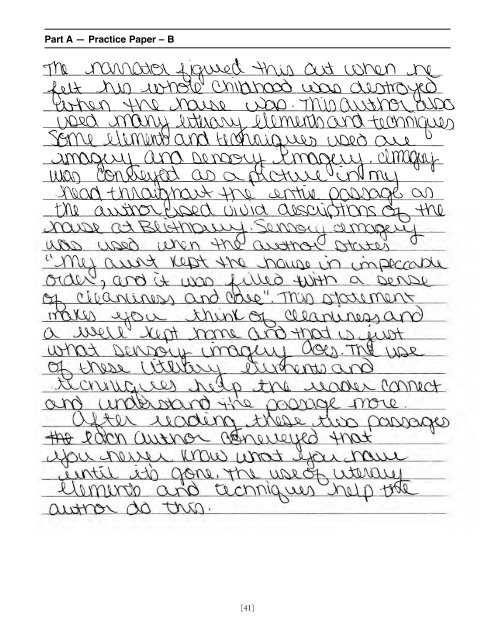 Part A — Practice Paper – B
The narrator figured this out when he
felt his whole childhood was destroyed
when the house was. This author also
used many literary elements and techniques
Some elements and techniques used are
imagery and sensory imagery. Imagery
was conveyed as a picture in my
head throughout the entire passage as
the author used vivid descriptions of the
house at Blisthbury. Sensory imagery
was used when the author states
"My aunt kept the house in impeccable
order, and it was filled with a sense
of cleanliness and care". This statement
makes you think of cleanliness and
a well kept home and that is just
what sensory imagery does. The use
of these literary elements and
techniques help the reader connect
and understand the passage more.
After reading these two passages
the each author conveyed that
you never know what you have
until it's gone. The use of literary
elements and techniques help the
author do this.
[41]